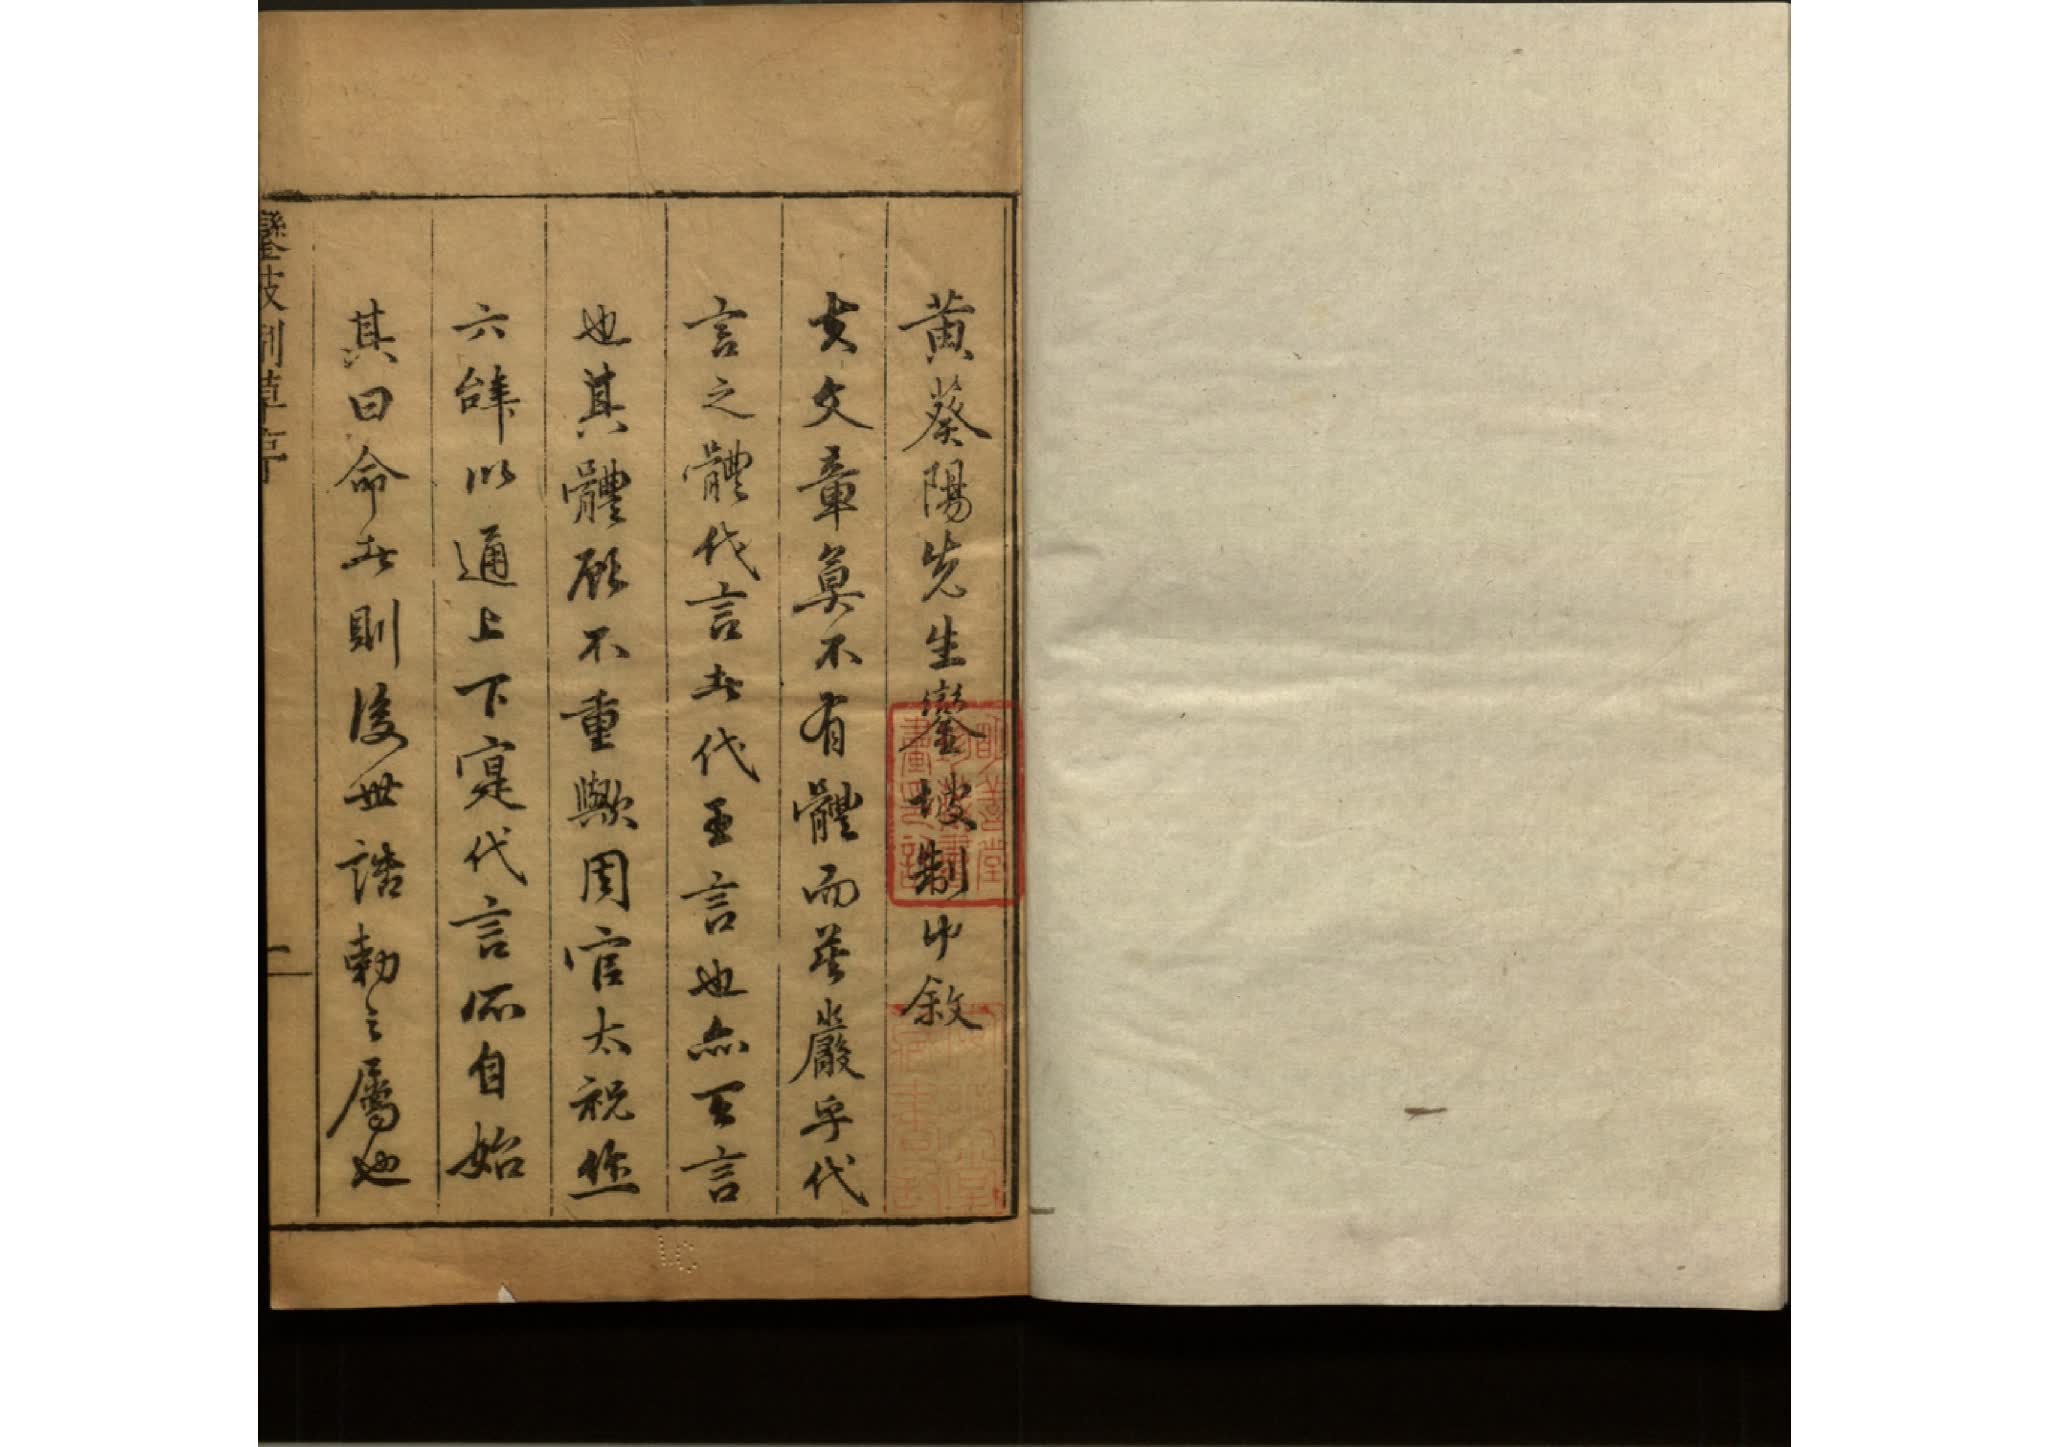 黃葵陽先生鑾坡制艸敘
夫文章莫不有體而莫嚴乎代
言之體代言者代王言也亦王言
也其體顧不重歟周官太祝作
六辝以通上下寔代言所自始
其曰命者則後世誥勅之屬也
鑾坡制草序
一